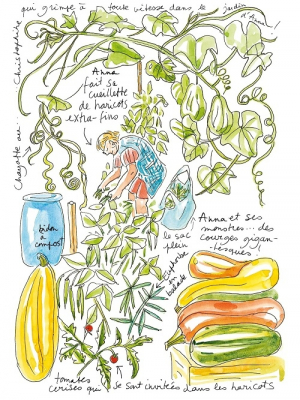 Chayotte ou... Christophine qui grimpe à toute vitesse dans le jardin d'Anna!
Anna
fait sa
cueillette
de haricots
extra-fins
bidon
à
compost
le sac
plein
Anna et ses
monstres... des
courges gigan-
tesques!
Euphorbe
en
balade
tomates
cerises qui se sont invitées dans les haricots